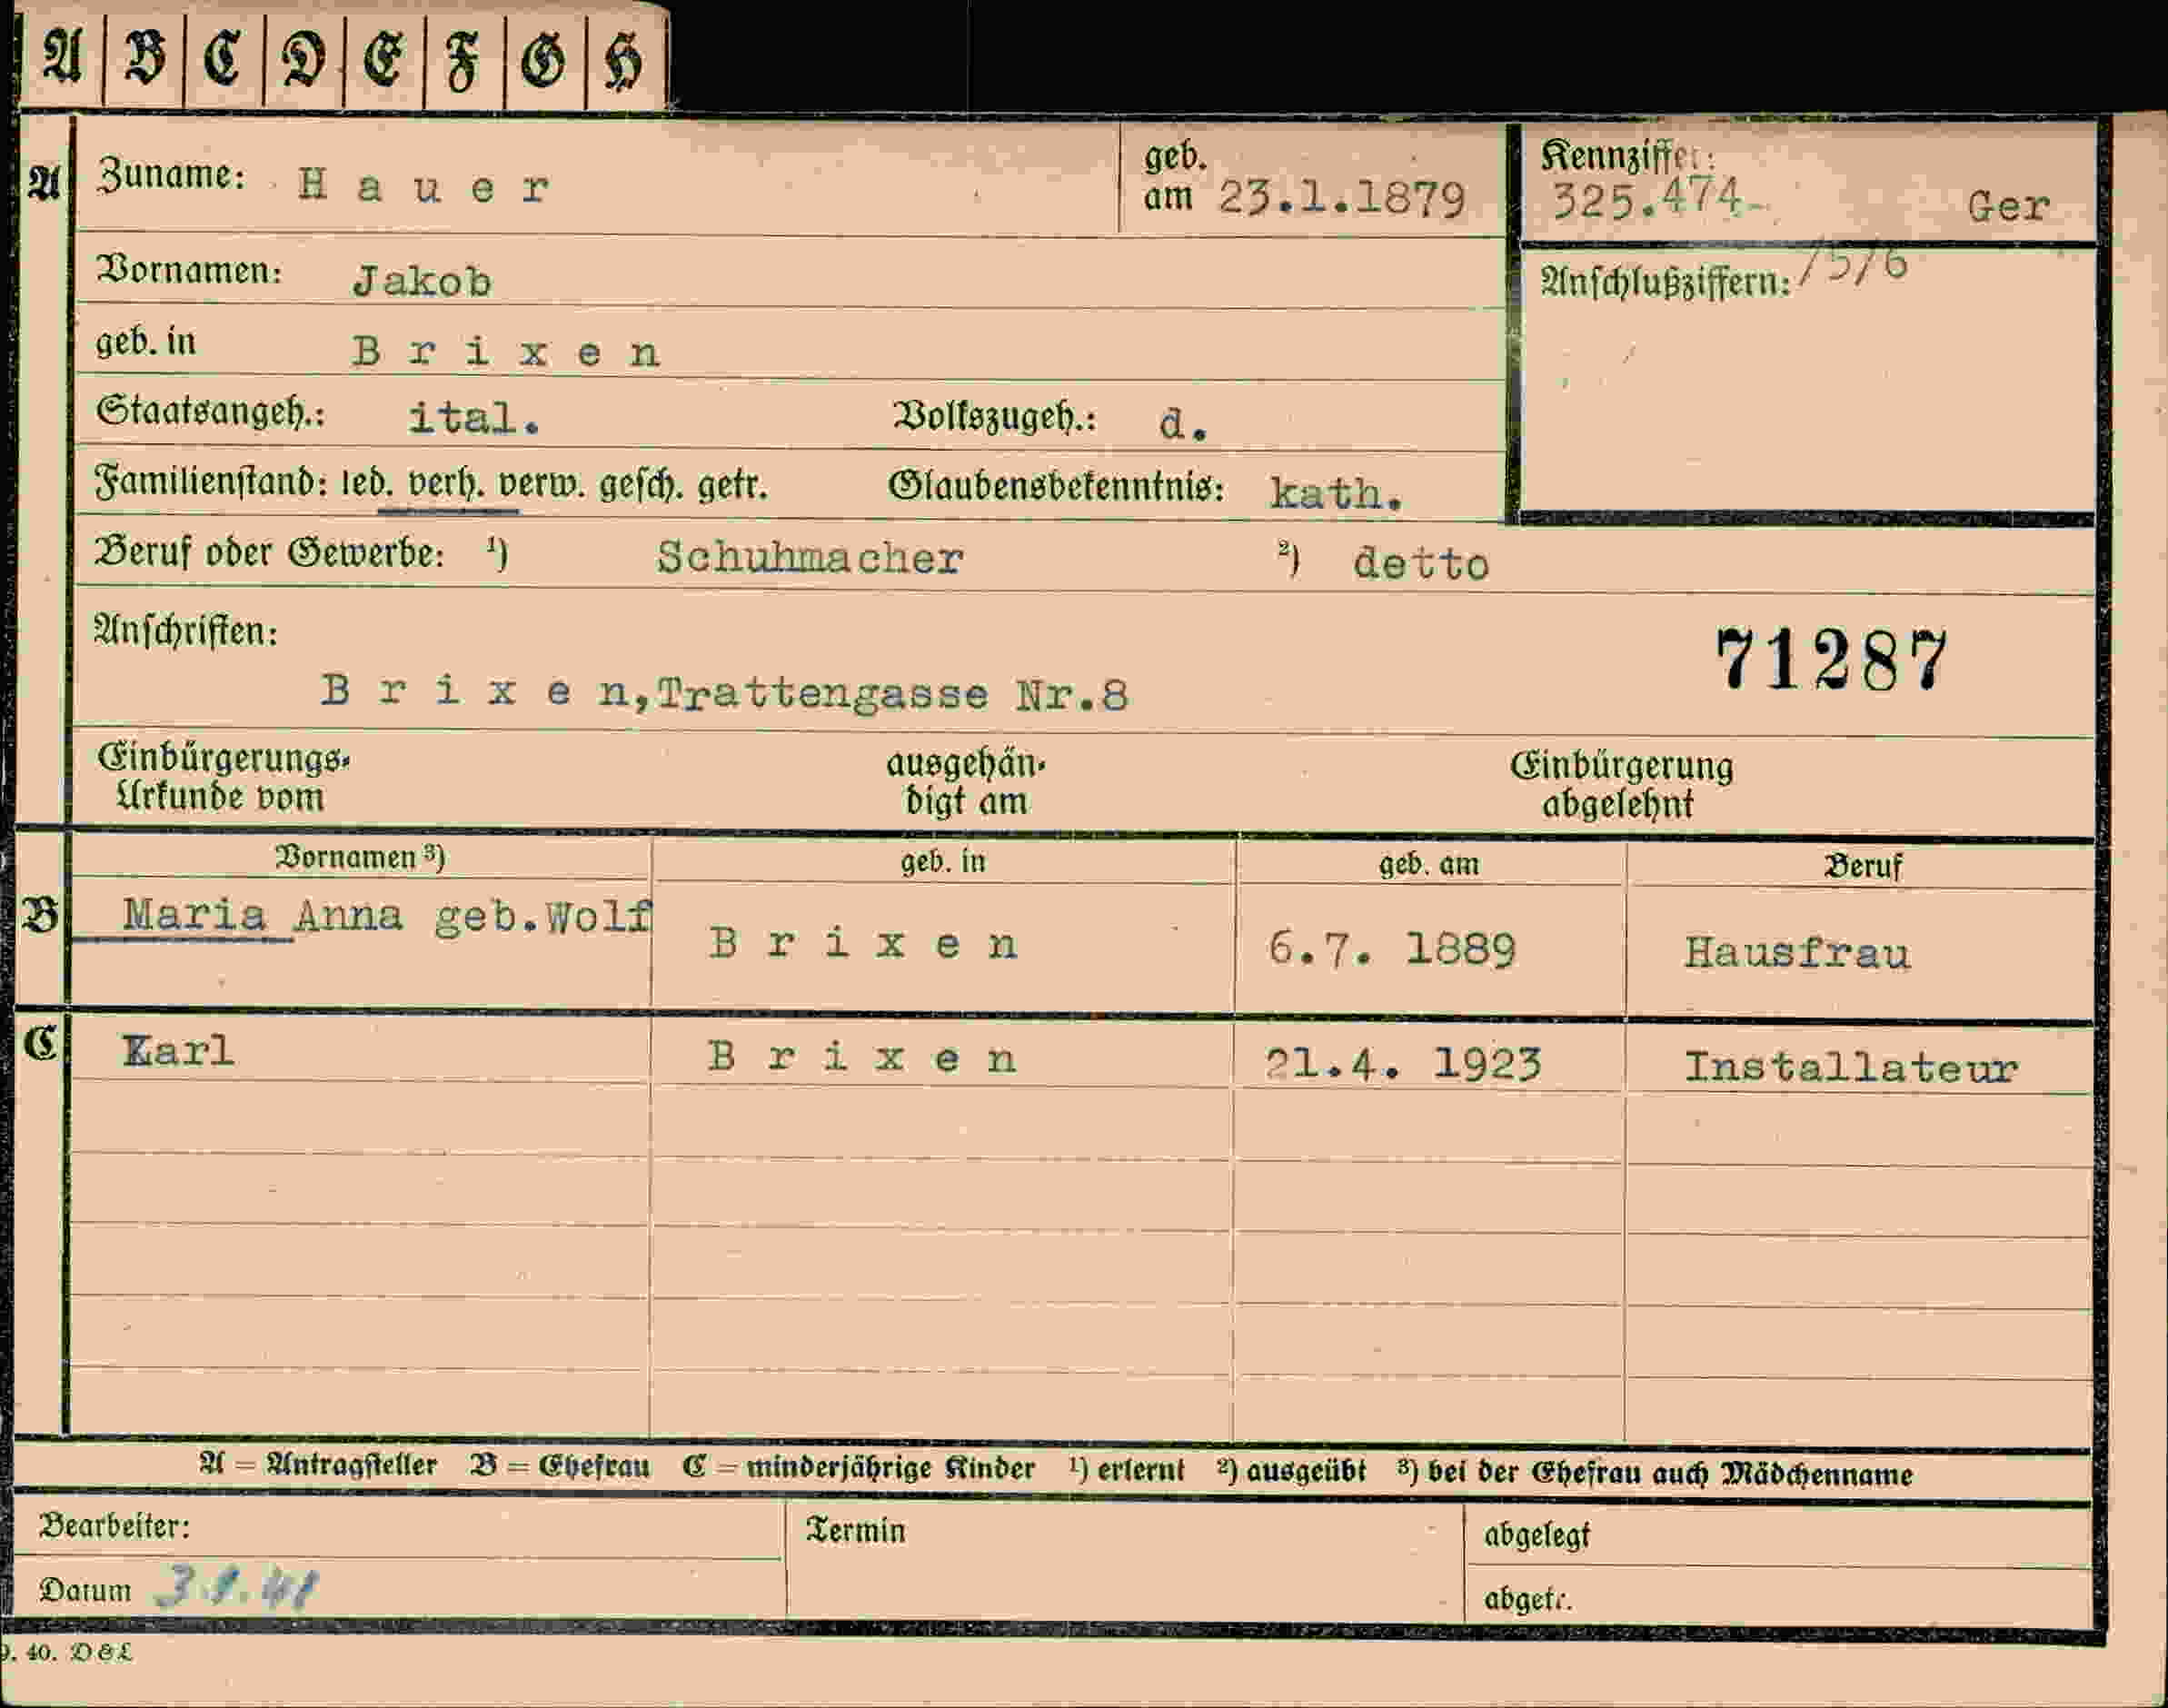 A B C D E F G H
A Zuname: H a u e r geb. am 23.1.1879 Kennziffer: 325.474- Ger
Vornamen: Jakob Anschlußziffern: /5/6
geb. in B r i x e n
Staatsangeh.: ital. Volkszugeh.: d.
Familienstand: led. verh. verw. gesch. getr. Glaubensbekenntnis: kath.
Beruf oder Gewerbe: ¹) Schuhmacher ²) detto
Anschriften: 71287
B r i x e n,Trattengasse Nr.8
Einbürgerungs- ausgehän- Einbürgerung
Urkunde vom digt am abgelehnt
Vornamen ³) geb. in geb. am Beruf
B Maria Anna geb.Wolf B r i x e n 6.7. 1889 Hausfrau
C Karl B r i x e n 21.4. 1923 Installateur
A = Antragsteller B = Ehefrau C = minderjährige Kinder ¹) erlernt ²) ausgeübt ³) bei der Ehefrau auch Mädchenname
Bearbeiter: Termin abgelegt
Datum 3.1.41 abgetr.
9. 40. D & L